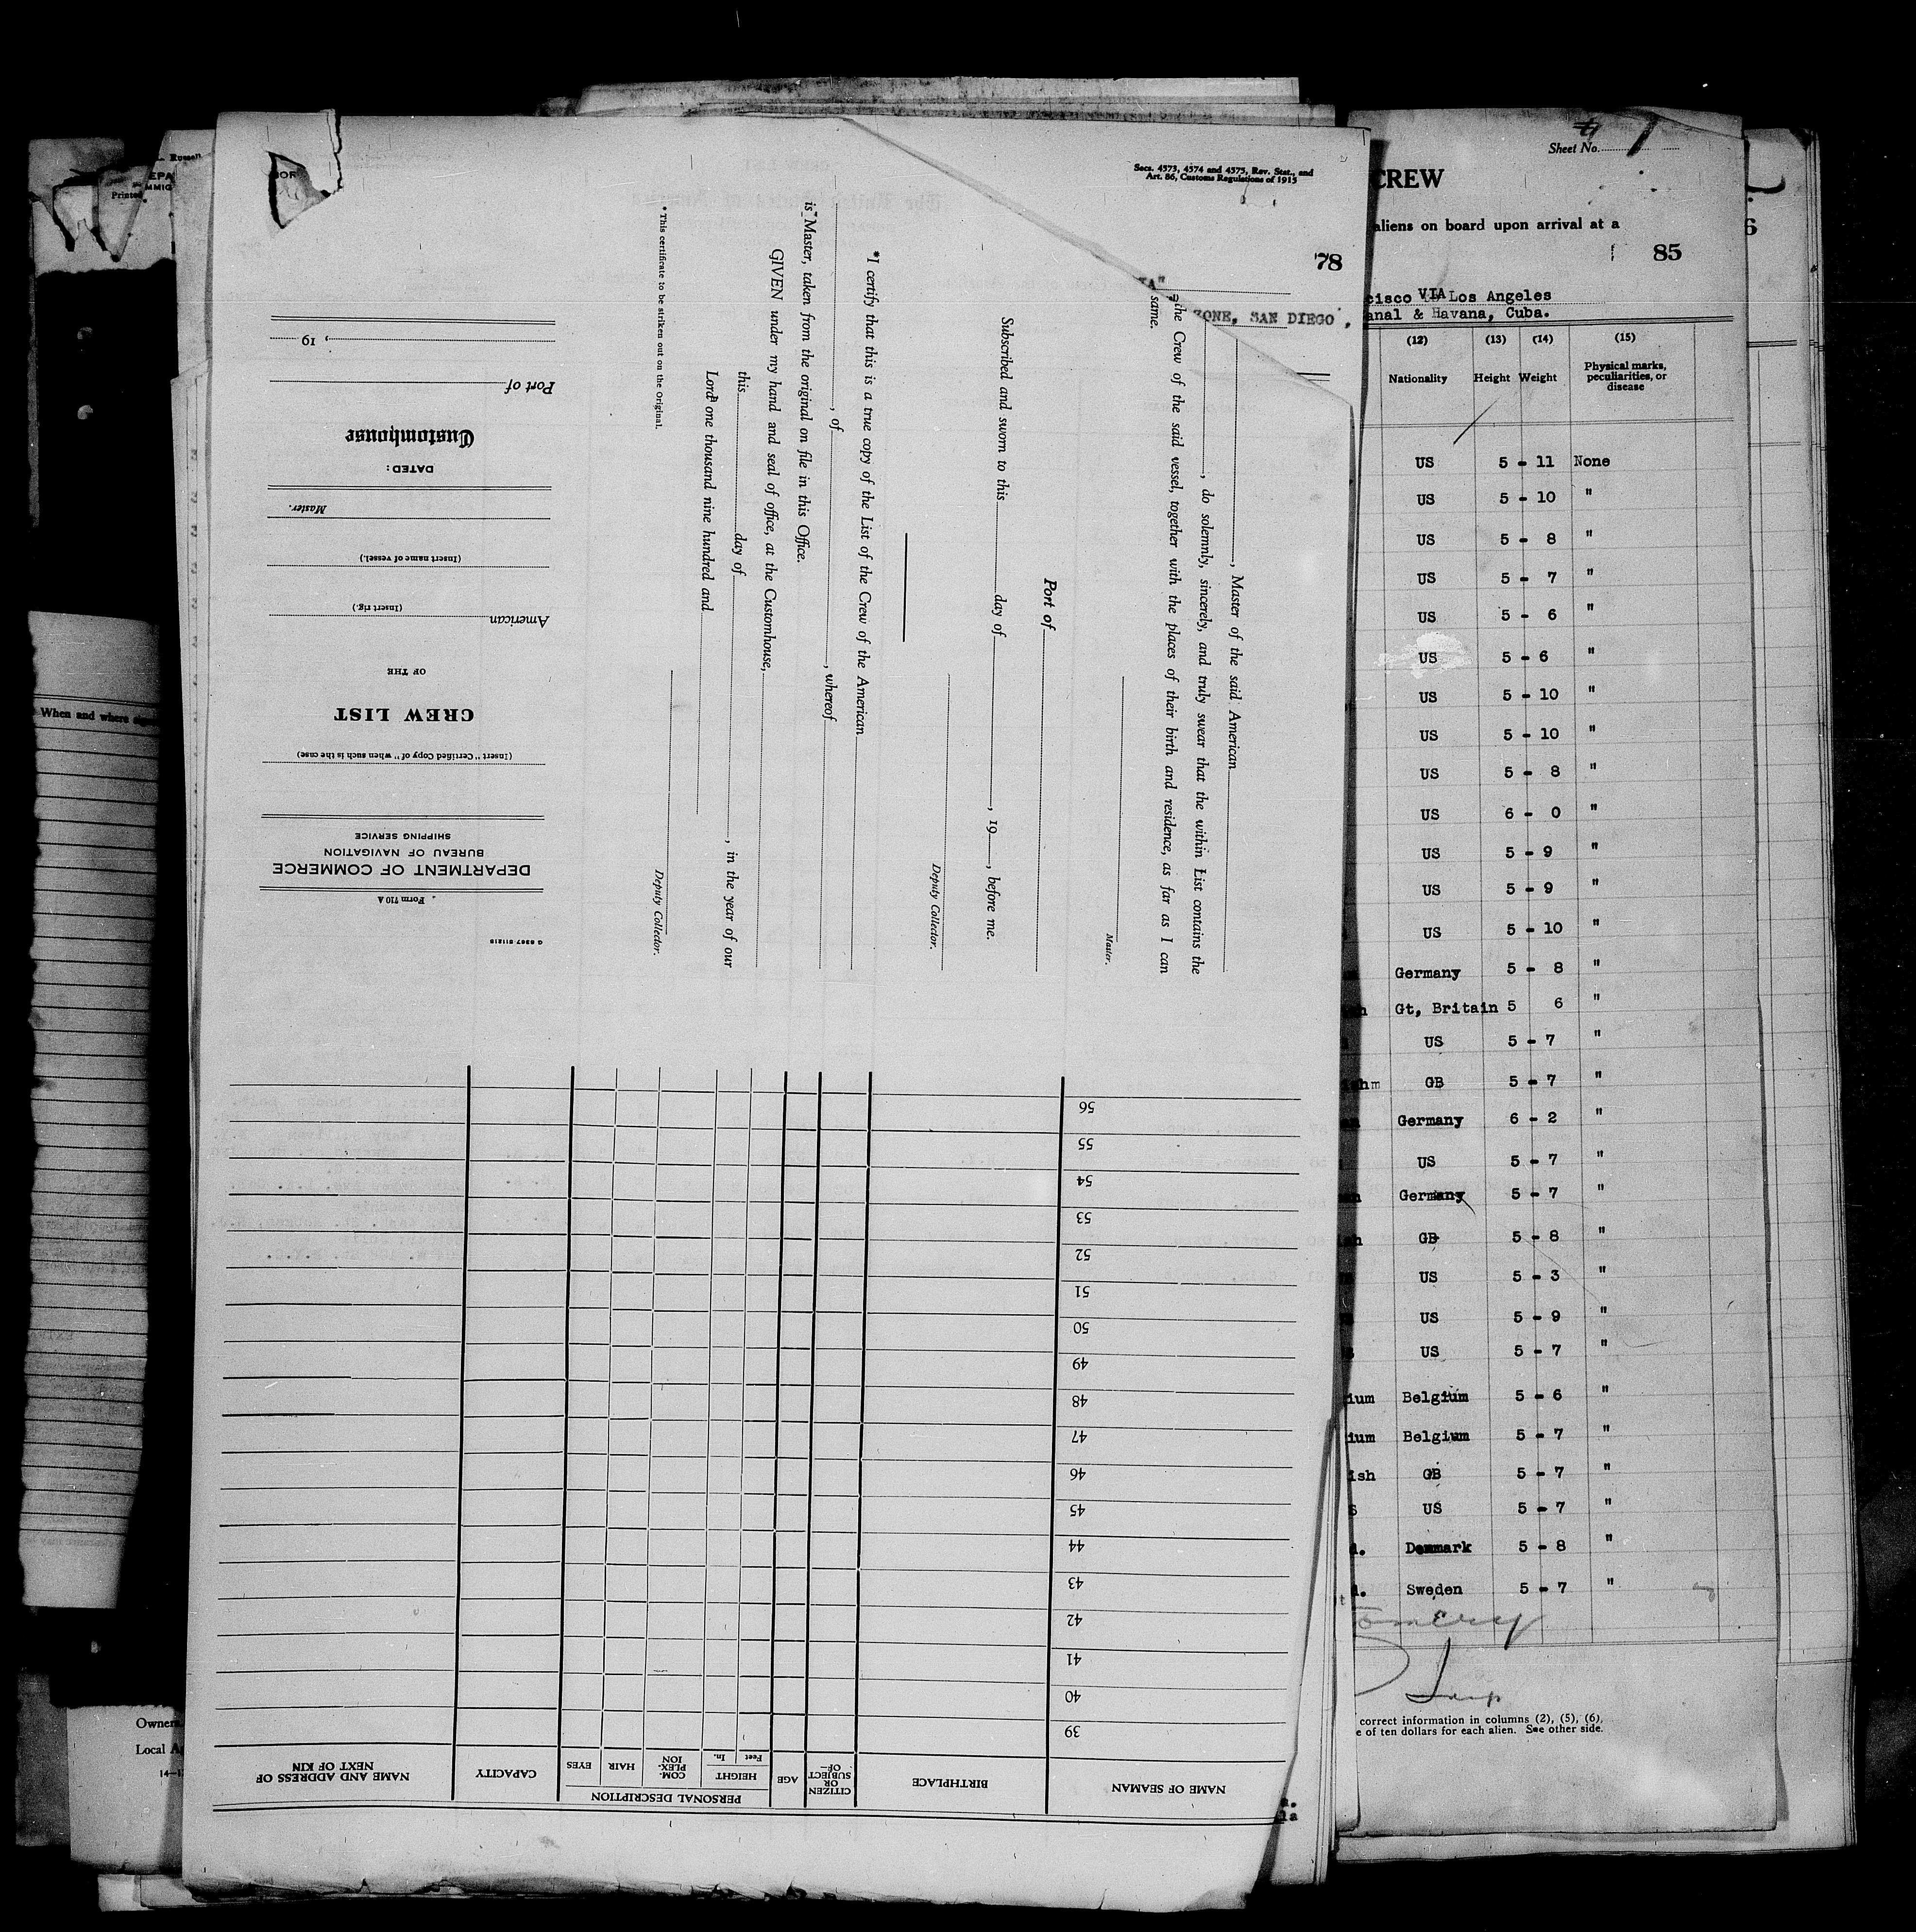 Secs. 4573, 4574 and 4575, Rev. Stat., and
Art. 86, Customs Regulations of 1915
78
ZONE, SAN DIEGO,
, Master of the said American
, do solemnly, sincerely, and truly swear that the within List contains the
the Crew of the said vessel, together with the places of their birth and residence, as far as I can
same.
Master.
Port of
Subscribed and sworn to this day of , 19 , before me.
Deputy Collector.
*I certify that this is a true copy of the List of the Crew of the American
, of , whereof
is Master, taken from the original on file in this Office.
GIVEN under my hand and seal of office, at the Customhouse,
this day of , in the year of our
Lord one thousand nine hundred and
Deputy Collector.
* This certificate to be striken out on the Original.
G 8367-511215
Form 710 A
DEPARTMENT OF COMMERCE
BUREAU OF NAVIGATION
SHIPPING SERVICE
(Insert "Certified Copy of" when such is the case)
CREW LIST
OF THE
American
(Insert rig.)
(Insert name of vessel.)
Master.
DATED:
Customhouse
Port of
, 19
NAME OF SEAMAN
BIRTHPLACE
CITIZEN
OR
SUBJECT
OF—
AGE
PERSONAL DESCRIPTION
HEIGHT
Feet In.
COM-
PLEX-
ION
HAIR
EYES
CAPACITY
NAME AND ADDRESS OF
NEXT OF KIN
39
40
41
42
43
44
45
46
47
48
49
50
51
52
53
54
55
56
Sheet No. 1
CREW
aliens on board upon arrival at a
85
cisco VIA Los Angeles
anal & Havana, Cuba.
(12) (13) (14) (15)
Nationality Height Weight Physical marks,
peculiarities, or
disease
US 5 - 11 None
US 5 - 10 "
US 5 - 8 "
US 5 - 7 "
US 5 - 6 "
US 5 - 6 "
US 5 - 10 "
US 5 - 10 "
US 5 - 8 "
US 6 - 0 "
US 5 - 9 "
US 5 - 9 "
US 5 - 10 "
Germany 5 - 8 "
Gt, Britain 5 6 "
US 5 - 7 "
GB 5 - 7 "
Germany 6 - 2 "
US 5 - 7 "
Germany 5 - 7 "
GB 5 - 8 "
US 5 - 3 "
US 5 - 9 "
US 5 - 7 "
ium Belgium 5 - 6 "
ium Belgium 5 - 7 "
ish GB 5 - 7 "
US 5 - 7 "
Denmark 5 - 8 "
Sweden 5 - 7 "
correct information in columns (2), (5), (6),
e of ten dollars for each alien. See other side.
Russell
EPA
MMIG
Printed
When and where
Owners
Local A
14—1
6